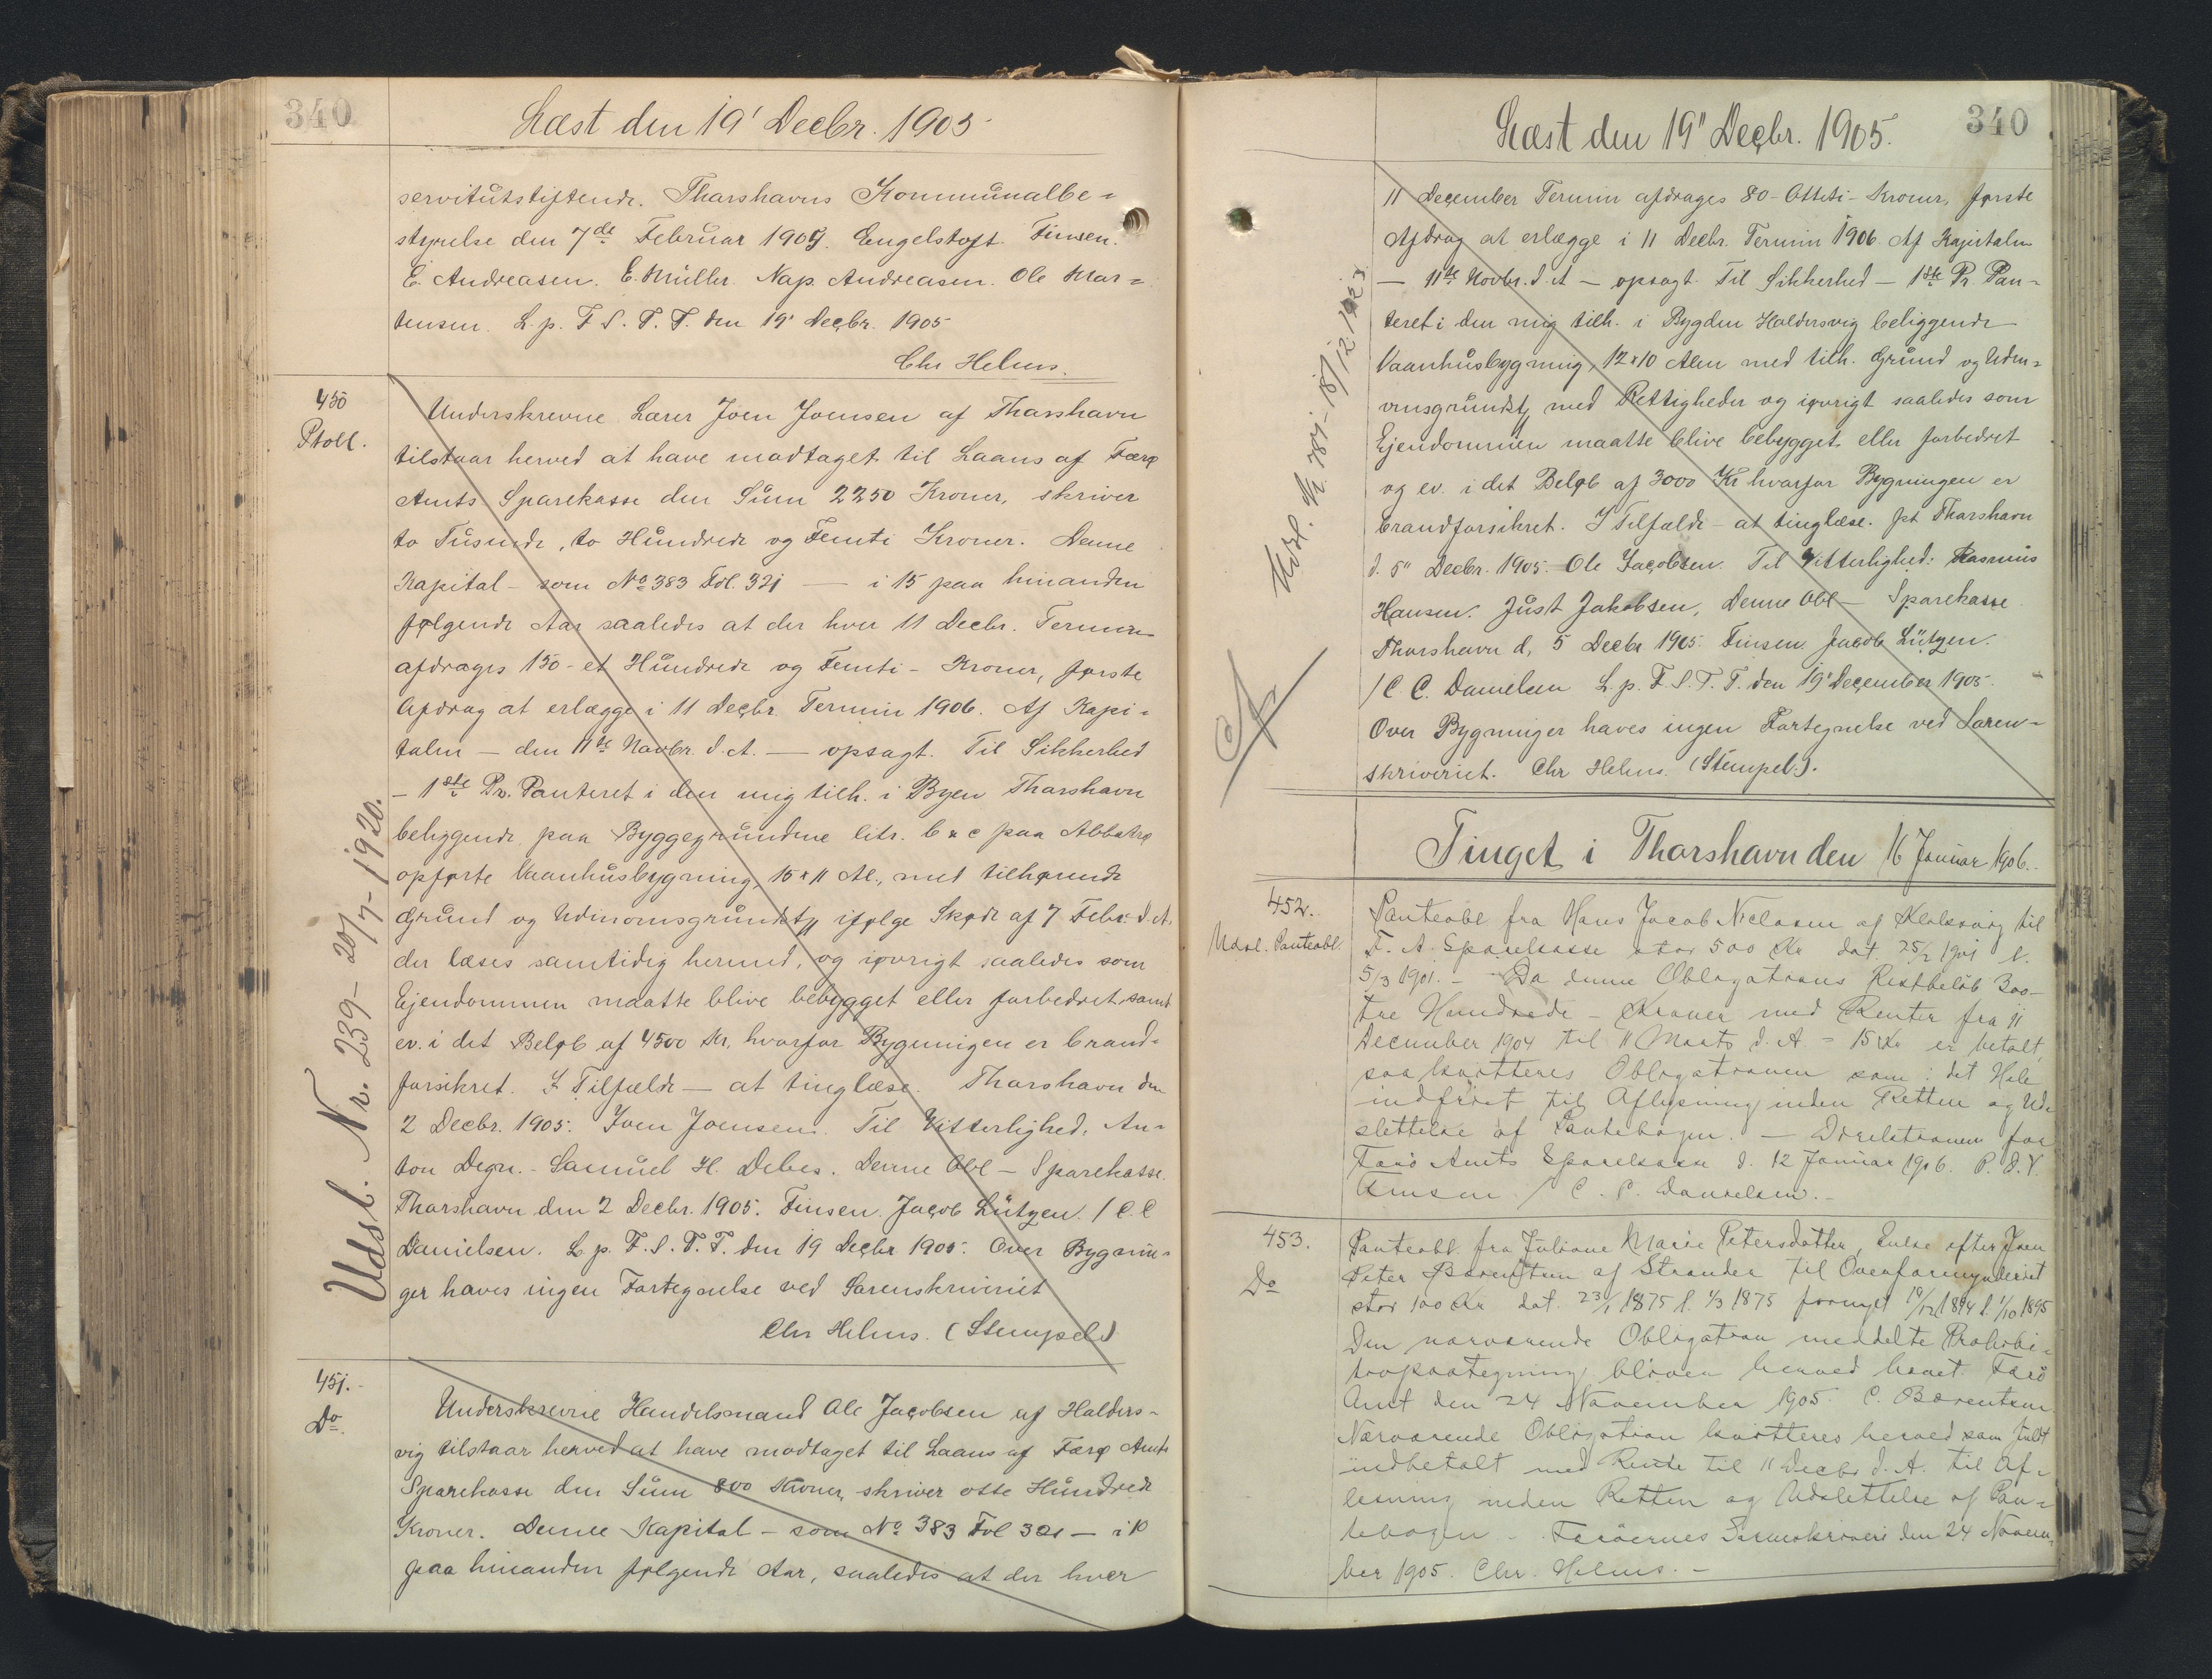 340
Læst den 19' Decbr. 1905
servitutstiftende. Thorshavns Kommunalbe=
styrelse den 7de Februar 1905. Engelstoft. Finsen.
E. Andreasen. E. Müller. Nap. Andreasen. Ole Mor=
tensen. L. p. F. S. T. T. den 19' Decbr. 1905
Chr Helms.
450
Ptobl.
Underskrevne Lærer Joen Joensen af Thorshavn
tilstaar herved at have modtaget til Laans af Færø
Amts Sparekasse den Sum 2250 Kroner, skriver
to Tusinde, to Hundrede og Femti Kroner. Denne
Kapital - som No 383 Fol. 321 — i 15 paa hinanden
følgende Aar saaledes at der hver 11 Decbr. Termin
afdrages 150 - et Hundrede og Femti - Kroner, første
Afdrag at erlægge i 11 Decbr. Termin 1906. Af Kapi=
talen — den 11te Novbr. d. A. — opsagt. Til Sikkerhed
- 1ste Pr. Panteret i den mig tilh. i Byen Thorshavn
beliggende paa Byggegrundene litr. b & c paa Abbatrø
opførte Vaanhusbygning, 15 x 11 Al., med tilhørende
Grund og Udenomsgrundst, ifølge Skøde af 7 Febr. d. A.
der læses samtidig hermed, og iøvrigt saaledes som
Ejendommen maatte blive bebygget eller forbedret, samt
ev. i det Beløb af 4500 Kr, hvorfor Bygningen er brand=
forsikret. I Tilfælde — at tinglæse. Thorshavn den
2 Decbr. 1905. Joen Joensen. Til Vitterlighed. An=
ton Degn. - Samuel H. Debes. Denne Obl - Sparekasse.
Thorshavn den 2 Decbr. 1905. Finsen. Jacob Lützen. / C. C
Danielsen. L. p. F. S. T. T. den 19 Decbr 1905. Over Bygnin=
ger haves ingen Fortegnelse ved Sorenskriveriet
Chr Helms. (Stempel)
Udsl. Nr. 239 - 20/7 - 1920.
451.
Do.
Underskrevne Handelsmand Ole Jacobsen af Halders-
vig tilstaar herved at have modtaget til Laans af Færø Amts
Sparekasse den Sum 800 Kroner, skriver otte Hundrede
Kroner. Denne Kapital - som No 383 Fol 321 - i 10
paa hinanden følgende Aar, saaledes at der hver
340
Læst den 19" Decbr. 1905.
11 December Termin afdrages 80 - Otteti - Kroner, første
Afdrag at erlægge i 11 Decbr. Termin 1906. Af Kapitalen
— 11te Novbr. d. A — opsagt. Til Sikkerhed - 1ste Pr. Pan=
teret i den mig tilh. i Bygden Haldersvig beliggende
Vaanhusbygning, 12 x 10 Alen med tilh. Grund og Uden=
omsgrundst, med Rettigheder og iøvrigt saaledes som
Ejendommen maatte blive bebygget eller forbedret
og ev. i det Beløb af 3000 Kr hvorfor Bygningen er
brandforsikret. I Tilfælde - at tinglæse. pt Thorshavn
d. 5" Decbr. 1905. Ole Jacobsen. Til Vitterlighed: Rasmus
Hansen. Just Jakobsen. Denne Obl - Sparekasse
Thorshavn d. 5 Decbr 1905. Finsen. Jacob Lützen.
/ C. C. Danielsen L. p. F. S. T. T. den 19' December 1905.
Over Bygninger haves ingen Fortegnelse ved Soren=
skriveriet. Chr Helms. (Stempel.).
Tinget i Thorshavn den 16 Januar 1906.
452.
Udsl. Panteobl.
Panteobl. fra Hans Jacob Niclasen af Klaksvig til
F. A. Sparekasse stor 500 Kr dat. 25/2 1901 l.
5/3 1901. - Da denne Obligations Restbeløb 300 -
tre Hundrede - Kroner med Renter fra 11
December 1904 til 11 Marts d. A. - 15 Kr er betalt,
saa kvitteres Obligationen som i det Hele
indfriet til Aflysning inden Retten og Ud=
slettelse af Pantebogen. — Direktionen for
Færø Amts Sparekasse d. 12 Januar 1906. P. D. V.
Finsen / C. C. Danielsen. -
453.
Do
Panteobl. fra Juliane Marie Petersdatter, Enke efter Joen
Peter Bærentsen af Strender til Overformynderiet
stor 100 Kr dat. 23/1 1875 l. 1/3 1875 fornyet 19/12 1894 l. 1/10 1895
Den nærværende Obligation meddelte Prohibi=
tivpaategning bliver herved hævet. Færø
Amt den 24 November 1905. C. Bærentsen
Nærværende Obligation kvitteres herved som fuldt
indbetalt med Rente til 11 Decbr d. A. til Af=
læsning inden Retten og Udslettelse af Pan=
tebogen - Færøernes Sorenskriveri den 24 Novem=
ber 1905. Chr. Helms. -